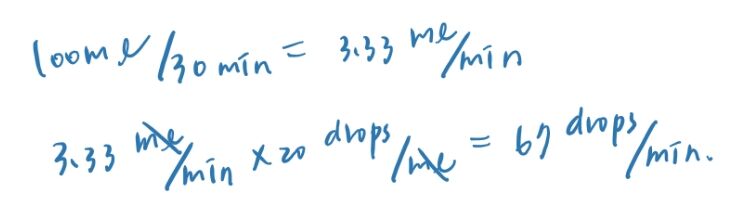 100ml/30 min = 3.33 ml/min
3.33 ml/min × 20 drops/ml = 67 drops/min.